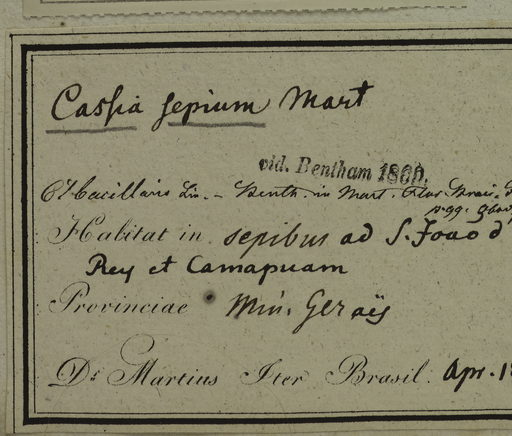 Cassia sepium Mart
vid. Bentham 1860.
Bacillaris Lin. – Benth. in Mart. Flor. Bras.
pag.
Habitat in sepibus ad S. Joao d'
Rey et Camapuam
Provinciae Min. Geraës
Dr Martius Iter Brasil. Apr. 18